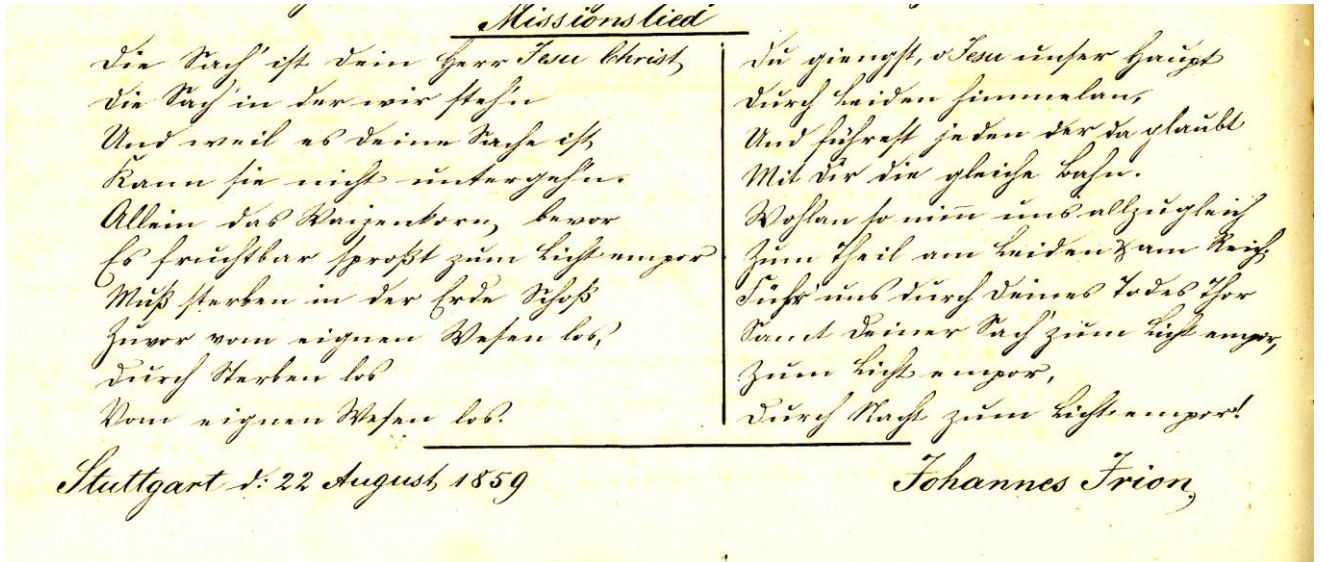 Missionslied
Die Sach' ist dein Herr Jesu Christ
Die Sach' in der wir steh'n
Und weil es deine Sache ist
Kann sie nicht untergeh'n.
Allein das Waizenkorn, bevor
Es fruchtbar sproßt zum Licht empor
Muß sterben in der Erde Schoß
Zuvor vom eignen Wesen los,
Durch Sterben los
Vom eignen Wesen los.
Du giengst, o Jesu unser Haupt
Durch Leiden himmelan,
Und führest jeden der da glaubt
Mit dir die gleiche Bahn.
Wohlan so nim̅ uns allzugleich
Zum Theil am Leiden & am Reich,
Führ' uns durch deines Todes Thor
Samt deiner Sach' zum Licht empor,
Zum Licht empor,
Durch Nacht zum Licht empor!
Stuttgart d: 22 August 1859
Johannes Irion,